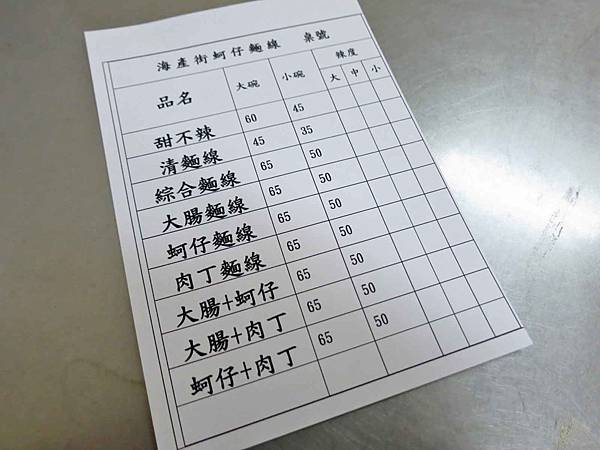 海產街蚵仔麵線 桌號
品名 大碗 小碗 辣度
大 中 小
甜不辣 60 45
清麵線 45 35
綜合麵線 65 50
大腸麵線 65 50
蚵仔麵線 65 50
肉丁麵線 65 50
大腸+蚵仔 65 50
大腸+肉丁 65 50
蚵仔+肉丁 65 50